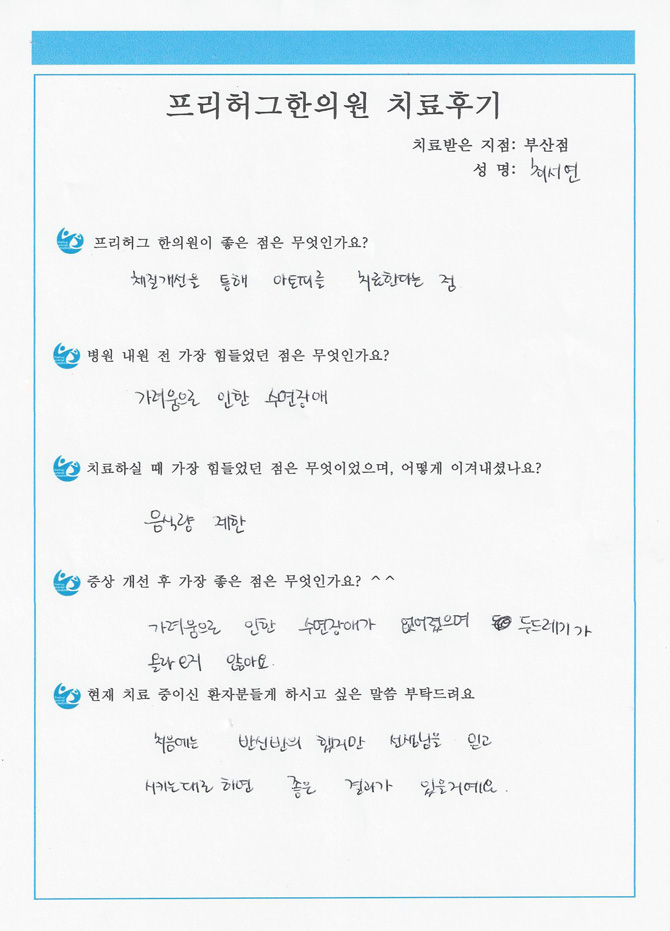 프리허그한의원 치료후기
치료받은 지점: 부산점
성 명: 최서연
프리허그 한의원이 좋은 점은 무엇인가요?
체질개선을 통해 아토피를 치료한다는 점
병원 내원 전 가장 힘들었던 점은 무엇인가요?
가려움으로 인한 수면장애
치료하실 때 가장 힘들었던 점은 무엇이었으며, 어떻게 이겨내셨나요?
음식량 제한
증상 개선 후 가장 좋은 점은 무엇인가요? ^^
가려움으로 인한 수면장애가 없어졌으며 두드레기가
올라오지 않아요.
현재 치료 중이신 환자분들게 하시고 싶은 말씀 부탁드려요
처음에는 반신반의 했지만 선생님을 믿고
시키는대로 하면 좋은 결과가 있을거예요.